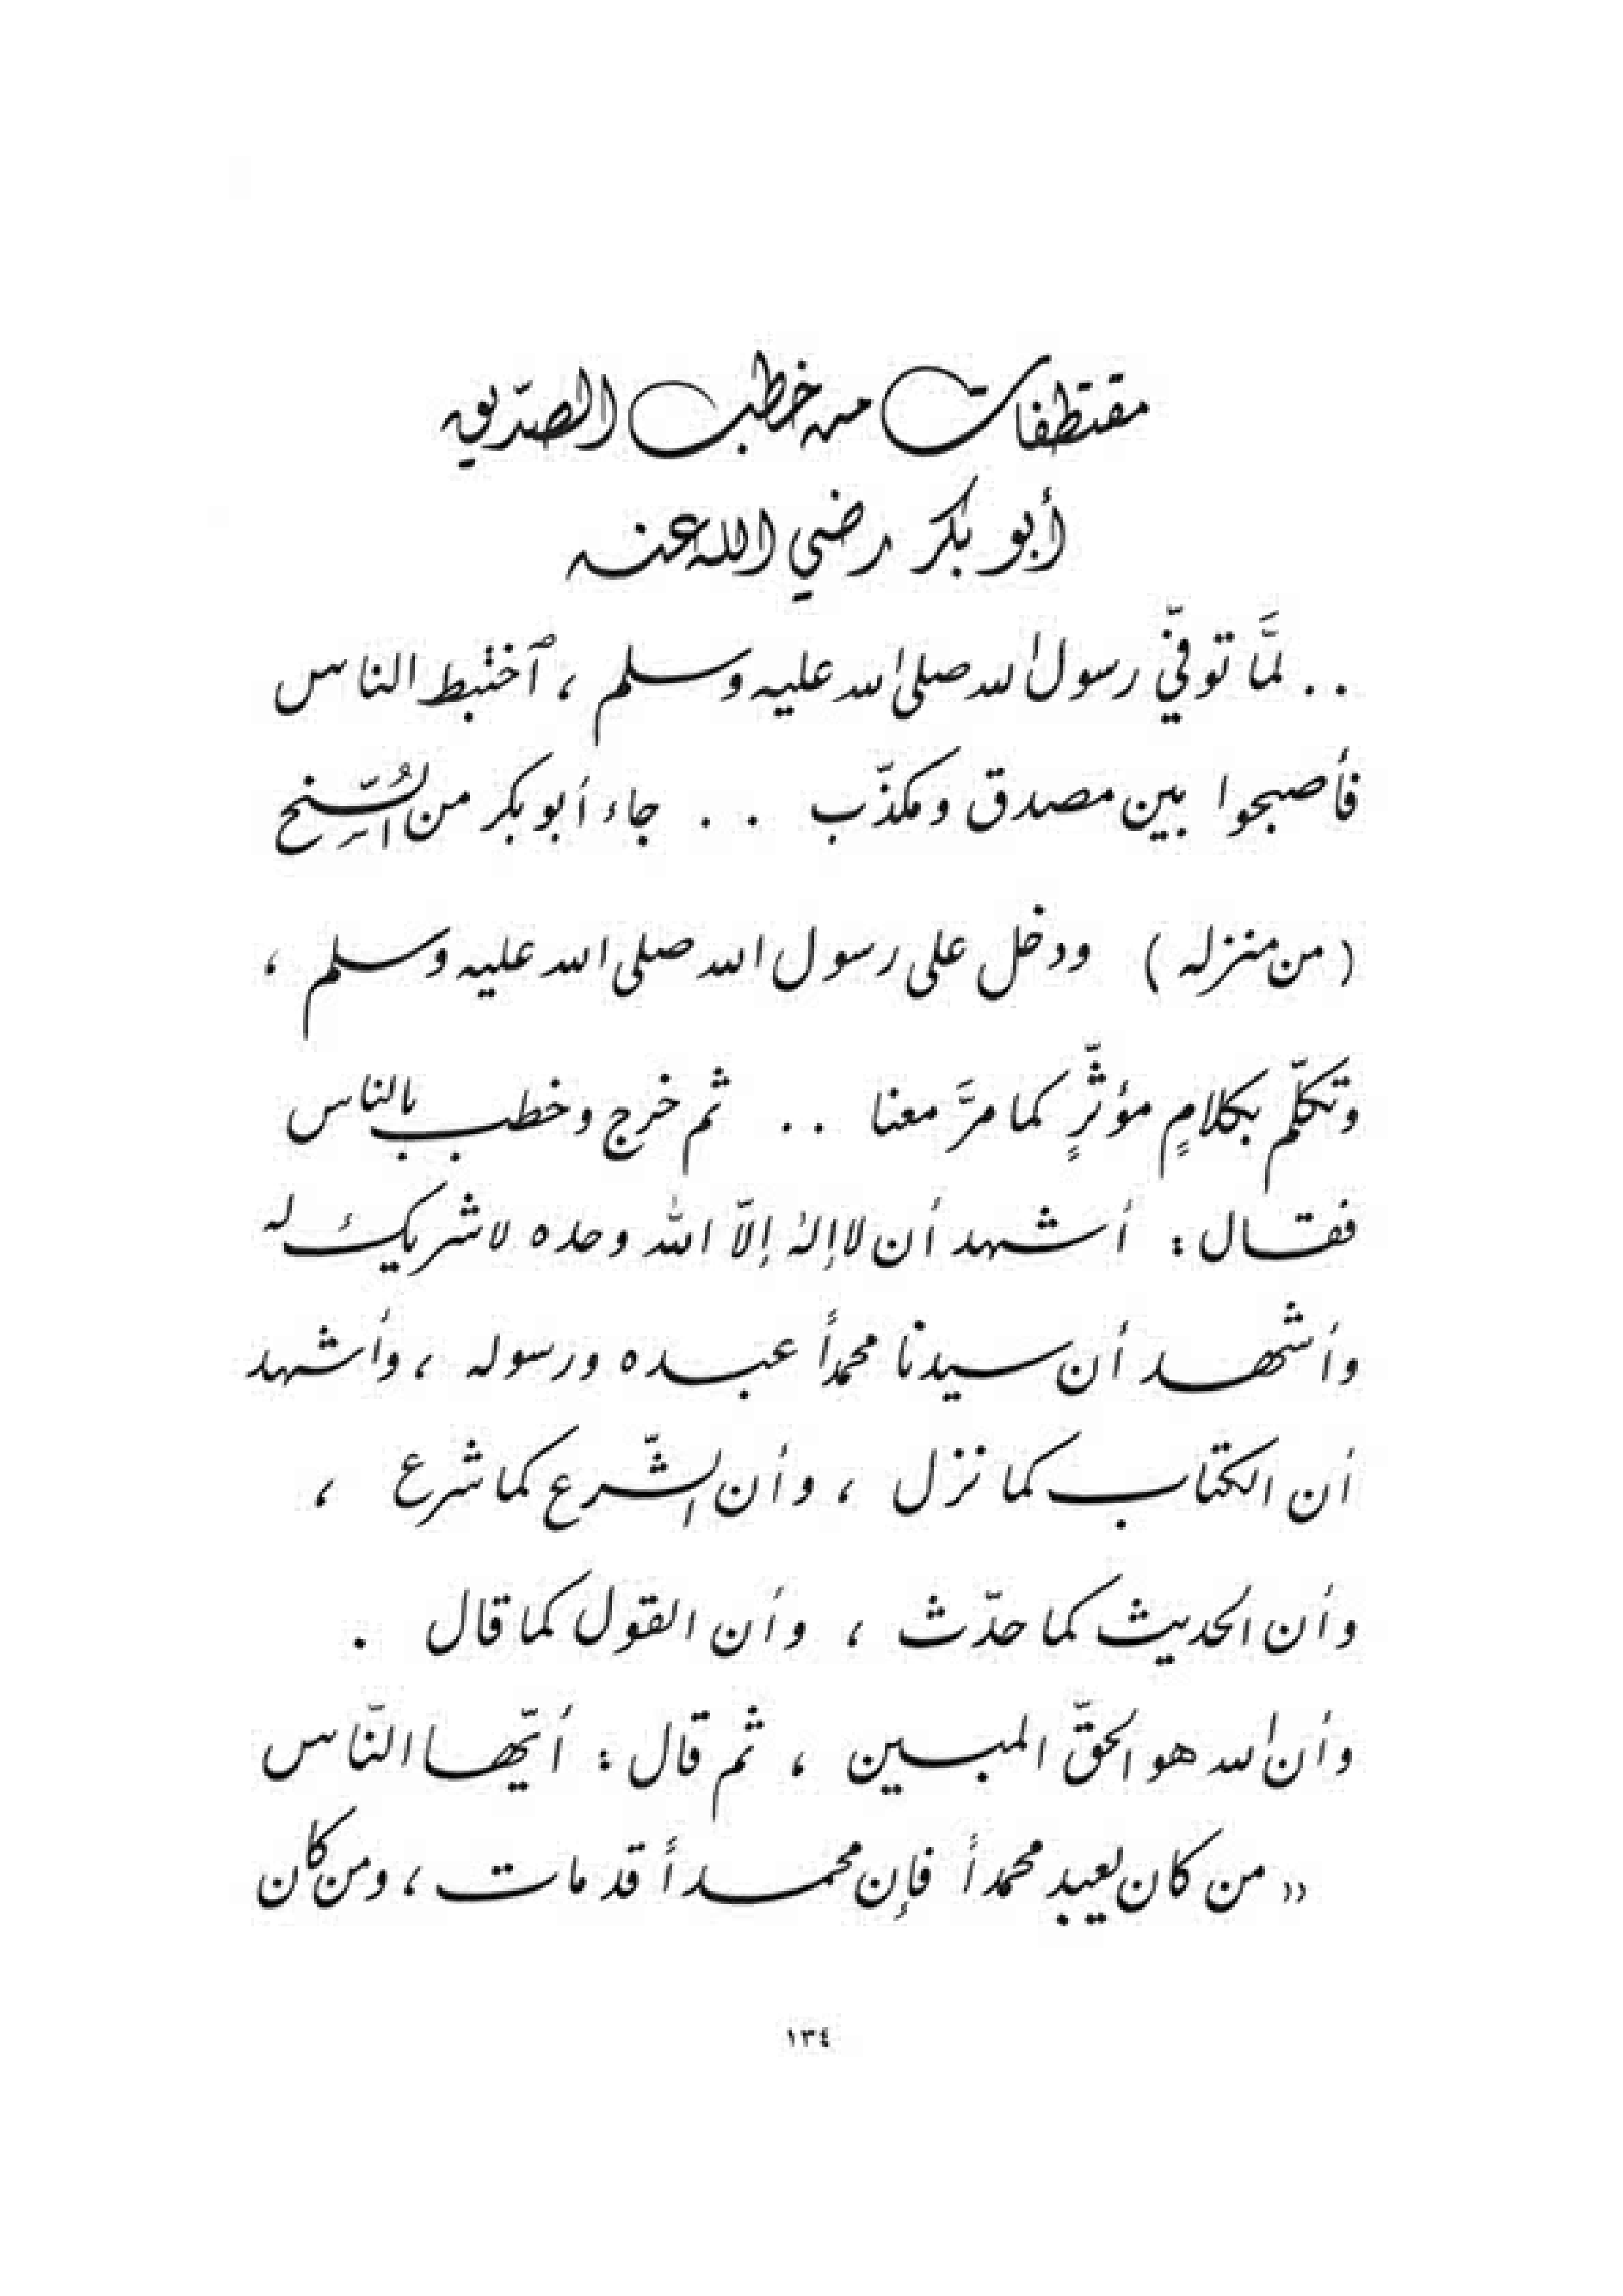 مقتطفات من خطب الصدّيق
أبو بكر رضي الله عنه
. . لمَّا توفيّ رسول الله صلى الله عليه وسلم ، ٱختبط الناس
فأصبحوا بين مصدق ومكذّب . . جاء أبو بكر من السُّنِح
( من منزله ) ودخل على رسول الله صلى الله عليه وسلم ،
وتكلّم بكلامٍ مؤثّرٍ كما مرَّ معنا . . ثم خرج وخطب بالناس
فقال : أشهد أن لا إله إلاّ الله وحده لا شريك له
وأشهد أن سيدنا محمداً عبده ورسوله ، وأشهد
أن الكتاب كما نزل ، وأن الشّرع كما شرع ،
وأن الحديث كما حدّث ، وأن القول كما قال .
وأن الله هو الحقّ المبين ، ثم قال : أيّها النّاس
« من كان يعبد محمداً فإن محمداً قد مات ، ومن كان
١٣٤